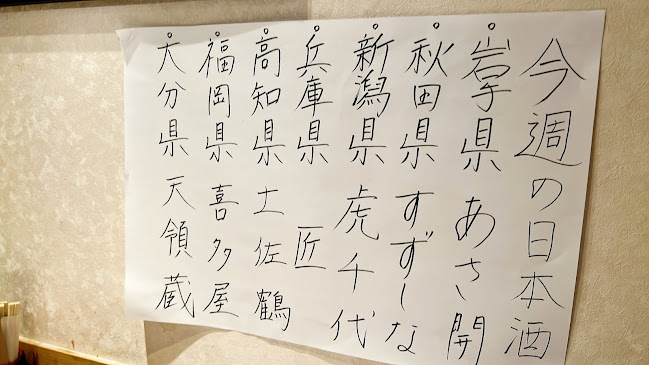 今週の日本酒
○岩手県 あさ開
○秋田県 すずしな
○新潟県 虎千代
○兵庫県 匠
○高知県 土佐鶴
○福岡県 喜多屋
○大分県 天領蔵